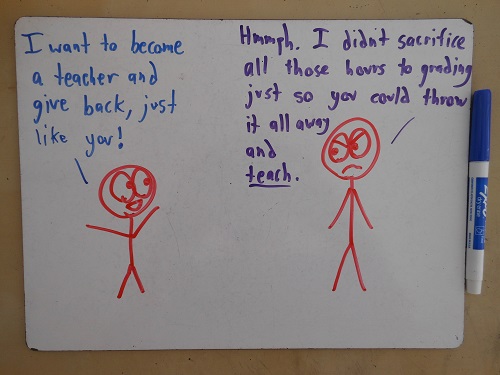 I want to become
a teacher and
give back, just
like you!
Hmmph. I didn't sacrifice
all those hours to grading
just so you could throw
it all away
and
teach.
EXPO